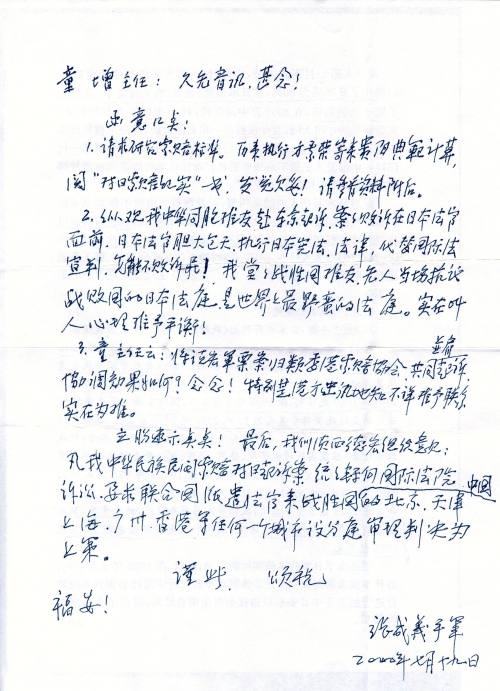 童增主任：久无音讯，甚念！
函意口矣：
1. 请求研究索赔标准。历来执行才景荣寄来贵的典範计算，
阅“对日索赔纪实”一书，发觉欠妥！请参看资料附后。
2. 纵观我中华同胞难友赴东京起诉，案案败诉在日本法官
面前，日本法官胆大包天，执行日本宪法、法律，代替国际法
宣判，怎能不败诉呢！我堂堂战胜国难友，无人当场抗议
战败国的日本法庭，是世界上最野蛮的法庭。实在叫
人心理难予平衡！
3. 童主任云：将证宏军票案归类香港索赔协会，共同起诉，
协调如果如何？念念！特别是港方通讯地址不详难予联系
实在为难。
立盼速示矣矣！最后，我们页面德宏组织意见：
凡我中华民族民间索赔对日起诉案，统统转向国际法院
诉讼，要求联合国派遣法官来战胜国的中国北京、天津
上海、广州、香港等任何一个城市设分庭审理判决为
上策。
谨此 颂祝
福安！
张成義手笔
2000年七月十九日